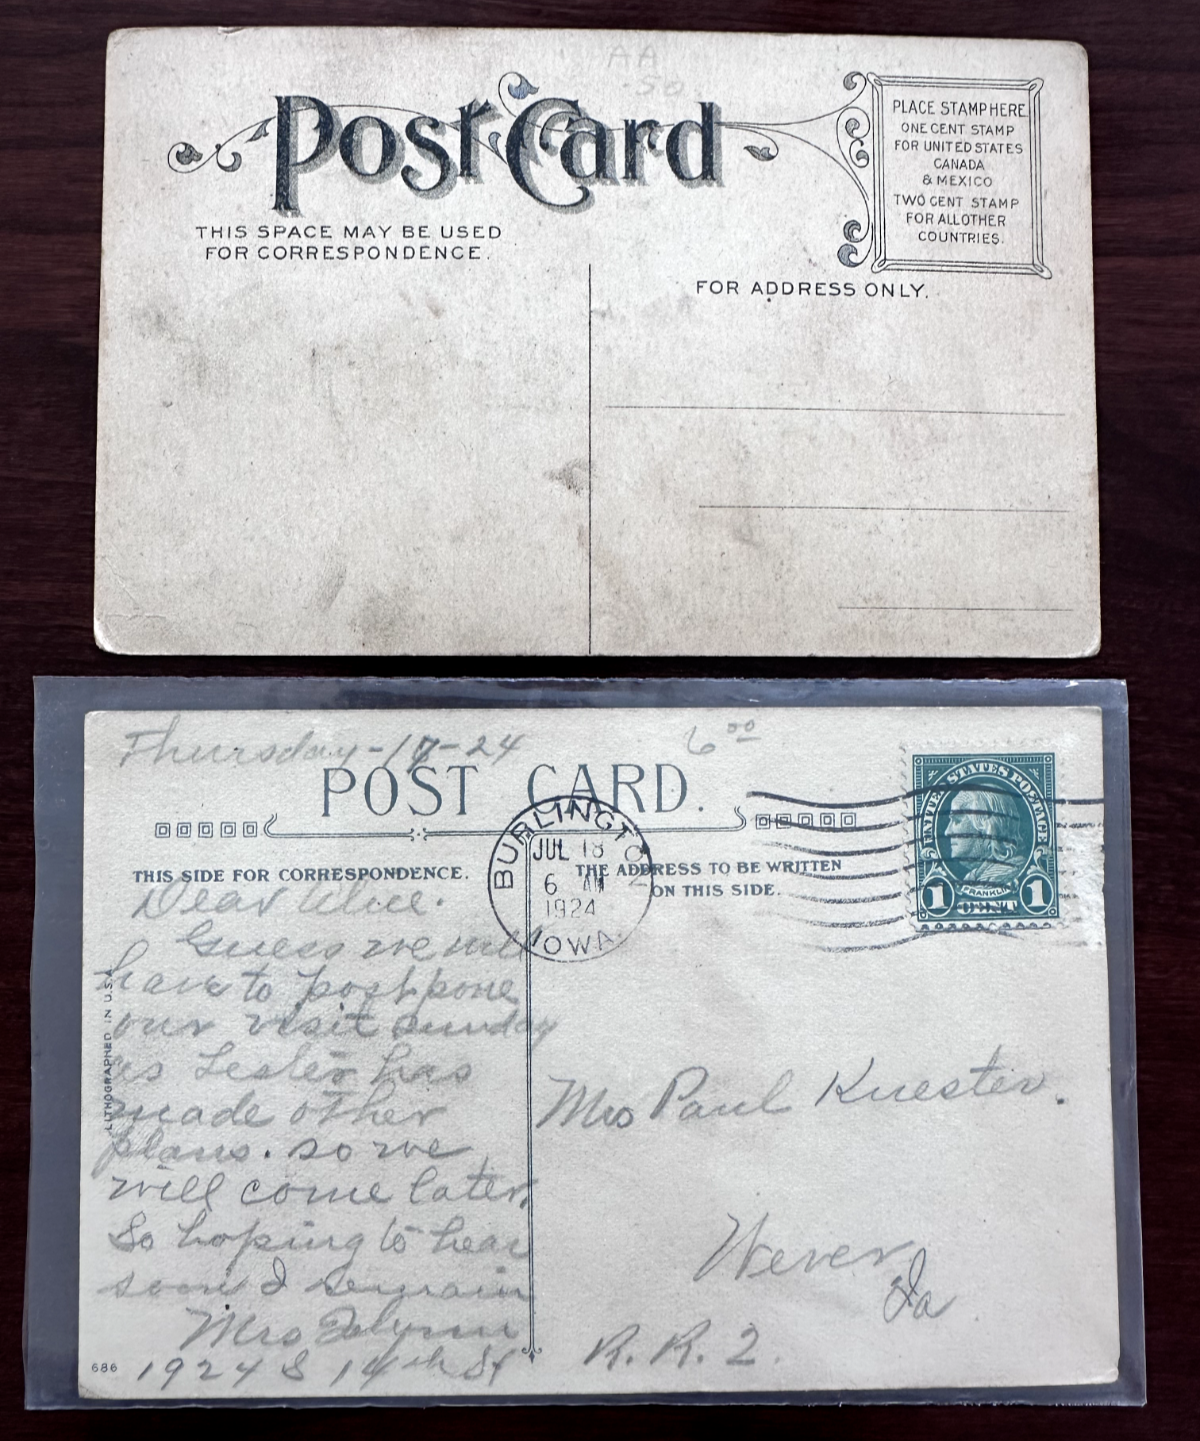 AA
.50
Post Card
THIS SPACE MAY BE USED
FOR CORRESPONDENCE.
PLACE STAMP HERE
ONE CENT STAMP
FOR UNITED STATES
CANADA
& MEXICO
TWO CENT STAMP
FOR ALL OTHER
COUNTRIES.
FOR ADDRESS ONLY.
Thursday-17-24
6 00
POST CARD.
THIS SIDE FOR CORRESPONDENCE.
THE ADDRESS TO BE WRITTEN
ON THIS SIDE.
BURLINGTON
JUL 18
6 AM
1924
IOWA.
UNITED STATES POSTAGE
FRANKLIN
1 CENT 1
Dear Alice.
Guess we will
have to postpone
our visit sunday
as Lester has
made other
plans. so we
will come later.
So hoping to hear
soon I remain
Mrs
1924 S 14th St
LITHOGRAPHED IN U.S.A.
686
Mrs Paul Kuester.
Wever
Ia
R. R. 2.